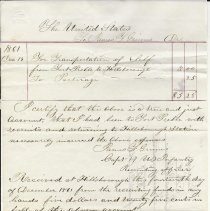 The United States
To James G. Dr.
1861
Dec 13 For Transportation of Self
from Fort Ridely to Hillsborough 5.00
To Porterage .25
$ 5.25
I certify that the above is a true and just
account, that I had been to Fort with
recruits and returning to Hillsborough Station
necessarily incurred the above expense
James G.
Capt 19 US Infantry
Recruiting Officer
Received at Hillsborough this fourteenth day
of December 1861 from the recruiting funds in my
hands five dollars and twenty five cents in
full of the above account